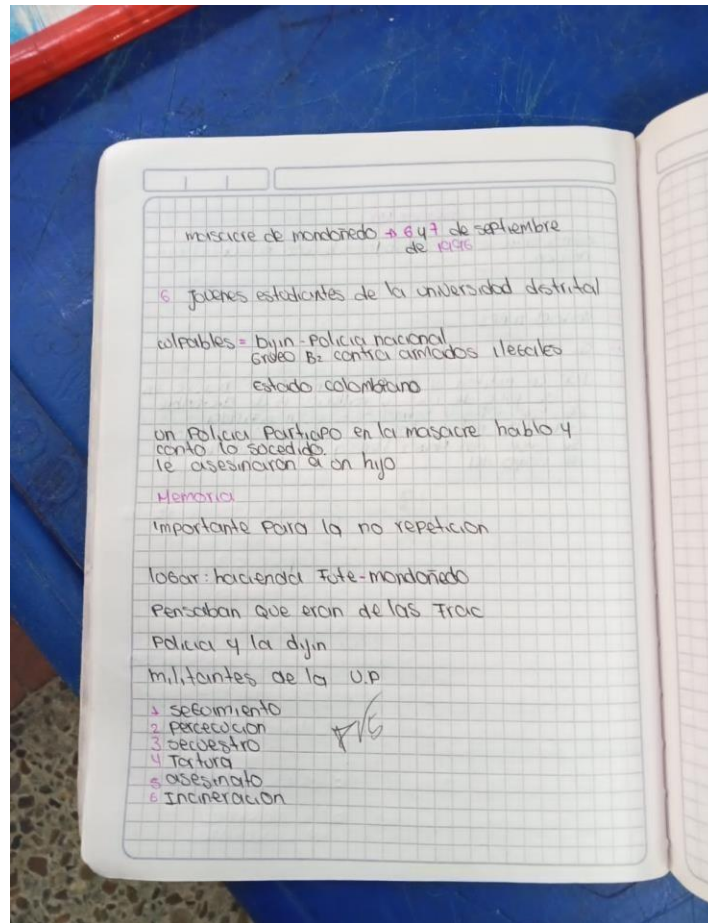 masacre de mondoñedo → 6 y 7 de septiembre
de 1996
6 jovenes estudiantes de la universidad distrital
culpables = dijin - policia nacional
Grupo B2 contra armados ilegales
estado colombiano
un policia participo en la masacre hablo y
conto lo socedido.
le asesinaron a un hijo
Memoria
importante para la no repeticion
logar: hacienda Fute-mondoñedo
Pensaban que eran de las Frac
Policia y la dijin
militantes de la U.P
1 segoimiento
2 percecucion
3 secuestro
4 Tortura
5 asesinato
6 Incineracion